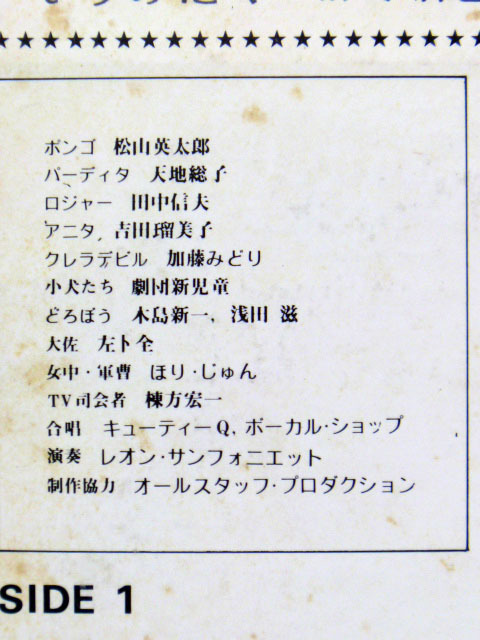 ★★★★★★★★★★★★★★★★★★★★★★
ポンゴ 松山英太郎
パーディタ 天地総子
ロジャー 田中信夫
アニタ 吉田瑠美子
クレラデビル 加藤みどり
小犬たち 劇団新児童
どろぼう 木島新一, 浅田 滋
大佐 左卜全
女中・軍曹 ほり・じゅん
TV司会者 棟方宏一
合唱 キューティーQ, ボーカル・ショップ
演奏 レオン・サンフォニエット
制作協力 オールスタッフ・プロダクション
SIDE 1